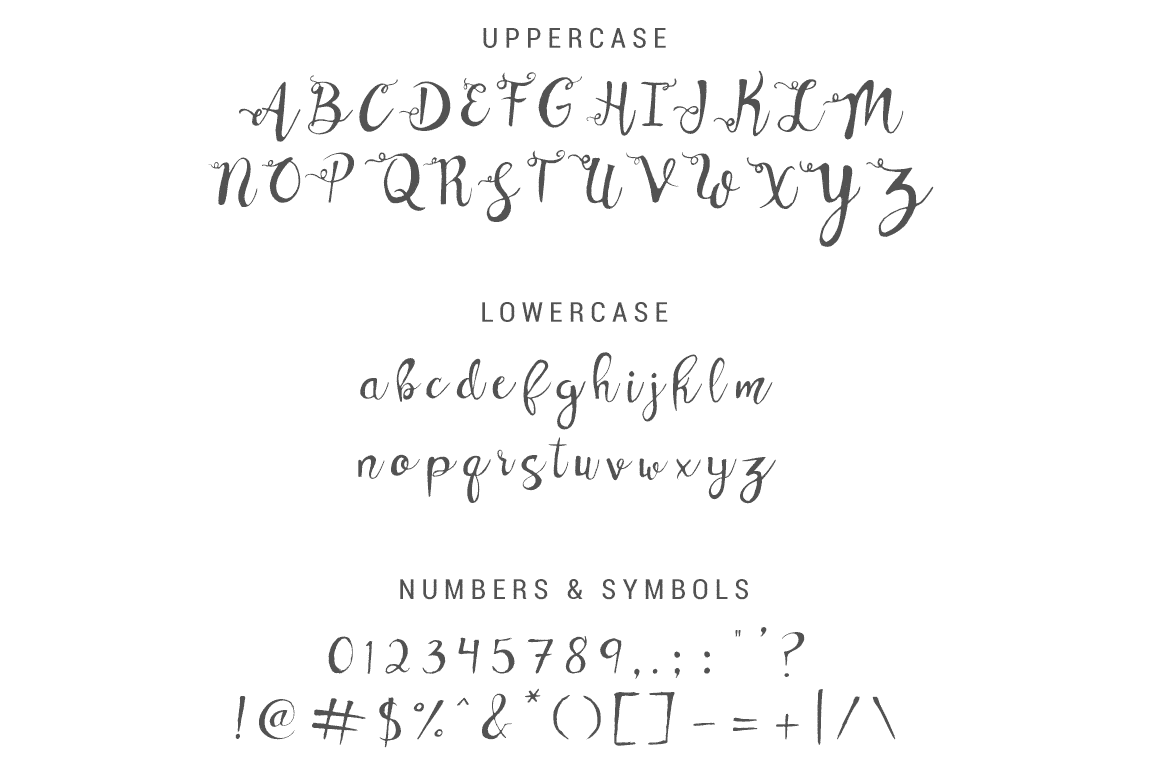 UPPERCASE
A B C D E F G H I J K L M
N O P Q R S T U V W X Y Z
LOWERCASE
a b c d e f g h i j k l m
n o p q r s t u v w x y z
NUMBERS & SYMBOLS
0 1 2 3 4 5 7 8 9 , . ; : " ' ?
! @ # $ % ^ & * ( ) [ ] - = + | / \